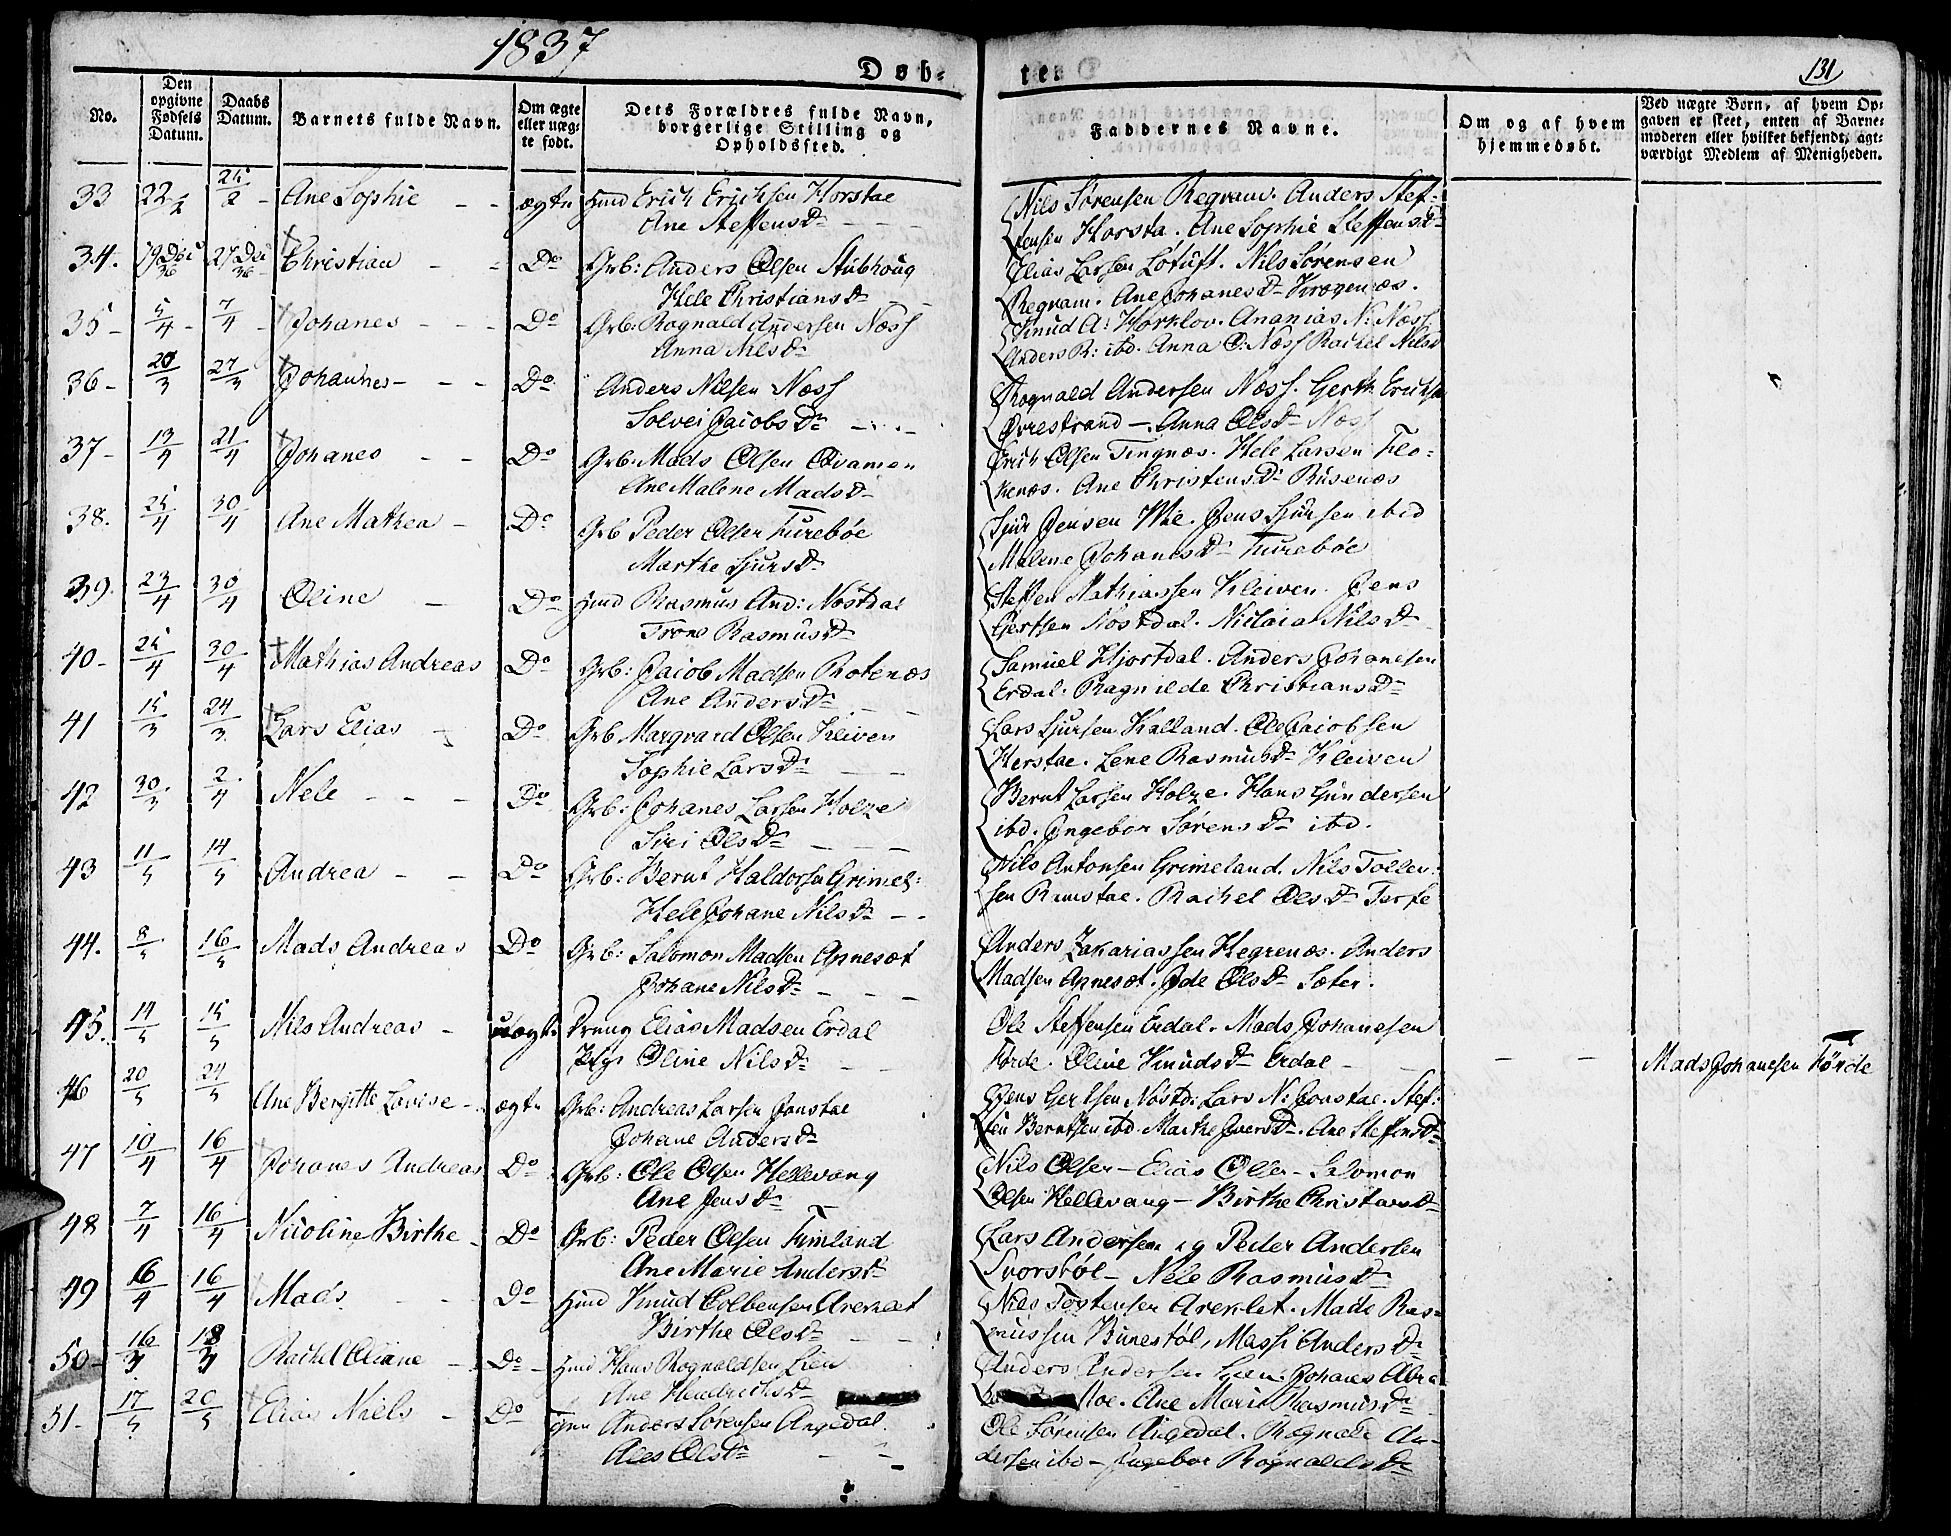 1837
Døb-
ter
131
No.
Den opgivne Fødsels Datum.
Daabs Datum.
Barnets fulde Navn.
Om ægte eller uæg-te født.
Dets Forældres fulde Navn, borgerlige Stilling og Opholdssted.
Faddernes Navne.
Om og af hvem hjemmedøbt.
Ved uægte Børn, af hvem Op-gaven er skeet, enten af Barne-moderen eller hvilket bekjendt, agt-værdigt Medlem af Menigheden.
33 22/2 25/2 - Ane Sophie - - ægte Hmd Erich Erichsen Horstae
Ane Steffensdr - - -
Nils Sørensen Regnam. Anders Stef-
fensen Horsta. Ane Sophie Steffensdr
34. 27 Dec 36 Christian - - Do Grb: Anders Olsen Stubhoug
Hele Christiansdr - -
Elias Larsen Løtuft. Nils Sørensen
Regnam. Ane Johanesdr Krogenæs.
35 - 5/4 - 7/4 - Johanes - - - Do Grb: Rognald Andersen Næss
Anna Nilsdr
Knud A: Horklov. Ananias N: Næss
Anders R: ibd. Anna O: Næss Rachel Nilsd
36 - 20/3 27/3 Johannes - - - Do Anders Nilsen Næss
Solvei Jacobsdr - . . -
Rognald Andersen Næss. Gerth Erichsen
Øvrestrand - Anna Olsdr Næss
37 - 13/4 21/4 Johanes - - Do Grb: Mads Olsen Qvamen
Ane Malene Madsdr
Erich Olsen Tingnæs. Hele Larsen Flo-
kenæs. Ane Christensdr Rusenæs
38. 25/4 30/4 Ane Mathea - Do Grb Peder Olsen Furebøe
Marthe Sjursdr
Sjur Jensen Wie. Jens Sjursen ibid
Malene Johanesdr Furebøe
39. 23/4 30/4 Oline - Do Hmd Rasmus And: Nøstdal
Trone Rasmusdr
Steffen Mathiassen Kleiven. Jens
Gertsen Nøstdal. Niclaia Nilsdr
40 - 25/4 30/4 Mathias Andreas Do Grb: Jacob Madsen Rotenæs
Ane Andersdr - -
Samuel Hjortdal. Anders Johanesen
Erdal. Ragnilde Christiansdr
41 15/3 24/3 Lars Elias - Do Grb Marqvard Olsen Kleiven
Sophie Larsdr - -
Lars Sjursen Kalland. Ole Jacobsen
Herstae. Lene Rasmusdr Kleiven
42 30/3 2/4 Nele - - - Do Grb: Johanes Larsen Holze
Siri Olsdr - - -
Bernt Larsen Holze. Hans Gundersen
ibd. Ingebor Sørensdr ibd.
43 11/5 14/5 Andrea - - Do Grb: Bernt Haldorsen Grimel:
Hele Johane Nilsdr - -
Nils Antonsen Grimeland. Nils Tollev-
sen Rimstae. Rachel Olsdr Terfe
44. 8/5 16/5 Mads Andreas Do Grb: Salomon Madsen Apnesæt
Johane Nilsdr - - -
Anders Zakariassen Hegrenæs. Anders
Madsen Apnesæt. Ide Olsdr Sæter.
45. 14/5 15/5 Nils Andreas - uægte Dreng Elias Madsen Erdal
Pige Oline Nilsdr - -
Ole Steffensen Erdal. Mads Johanesen
Førde. Oline Knudsdr Erdal - - - - Mads Johanesen Førde
46 20/5 24/5 Ane Bergitte Lovise - ægte Grb: Andreas Larsen Jonstae
Johane Andersdr
Jens Gertsen Nøstd: Lars N: Jonstae. Stef:
fen Berntsen ibd. Marthe Iversdr. Ane Steffensdr
47 10/4 16/4 Johanes Andreas Do Grb: Ole Olsen Hellevang
Ane Jensdr -
Nils Olsen - Elias Olsen - Salomon
Olsen Hellevang - Birthe Christiansdr
48 7/4 16/4 Nicoline Birthe - Do Grb: Peder Olsen Fimland
Ane Marie Andersdr
Lars Andersen og Peder Andersen
Svorstøl - Nele Rasmusdr
49 16/4 16/4 Mads - - Do Hmd Knud Colbensen Areklet
Birthe Olsdr - -
Nils Tostensen Areklet. Mads Ras-
mussen Bunestøl, Massi Andersdr
50 - 16/4 18/4 Rachel Oliane - Do - Hmd Hans Rognaldsen Lien
Ane Hendrichsdr
Anders Andersen Lien. Johanes Abra
Moe. Ane Marie Rasmusdr
51 - 17/5 20/5 Elias Niels - Do Anders Sørensen Angedal.
Ales Olsdr - -
Ole Sørensen Angedal. Rognald An-
dersen ibd - Ingebor Rognaldsdr